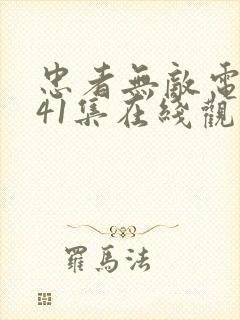 忠者無敵電
41集在綫觀
羅馬法